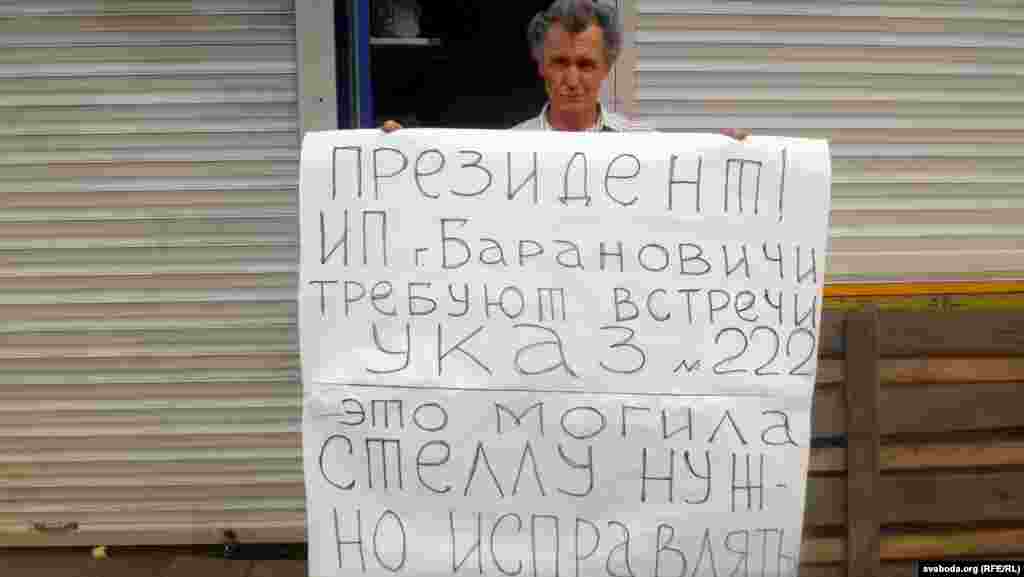 ПРЕЗИДЕНТ!
ИП г Барановичи
требуют встречи
Указ № 222
это могила
Стеллу нуж-
но исправлять
svaboda.org (RFE/RL)